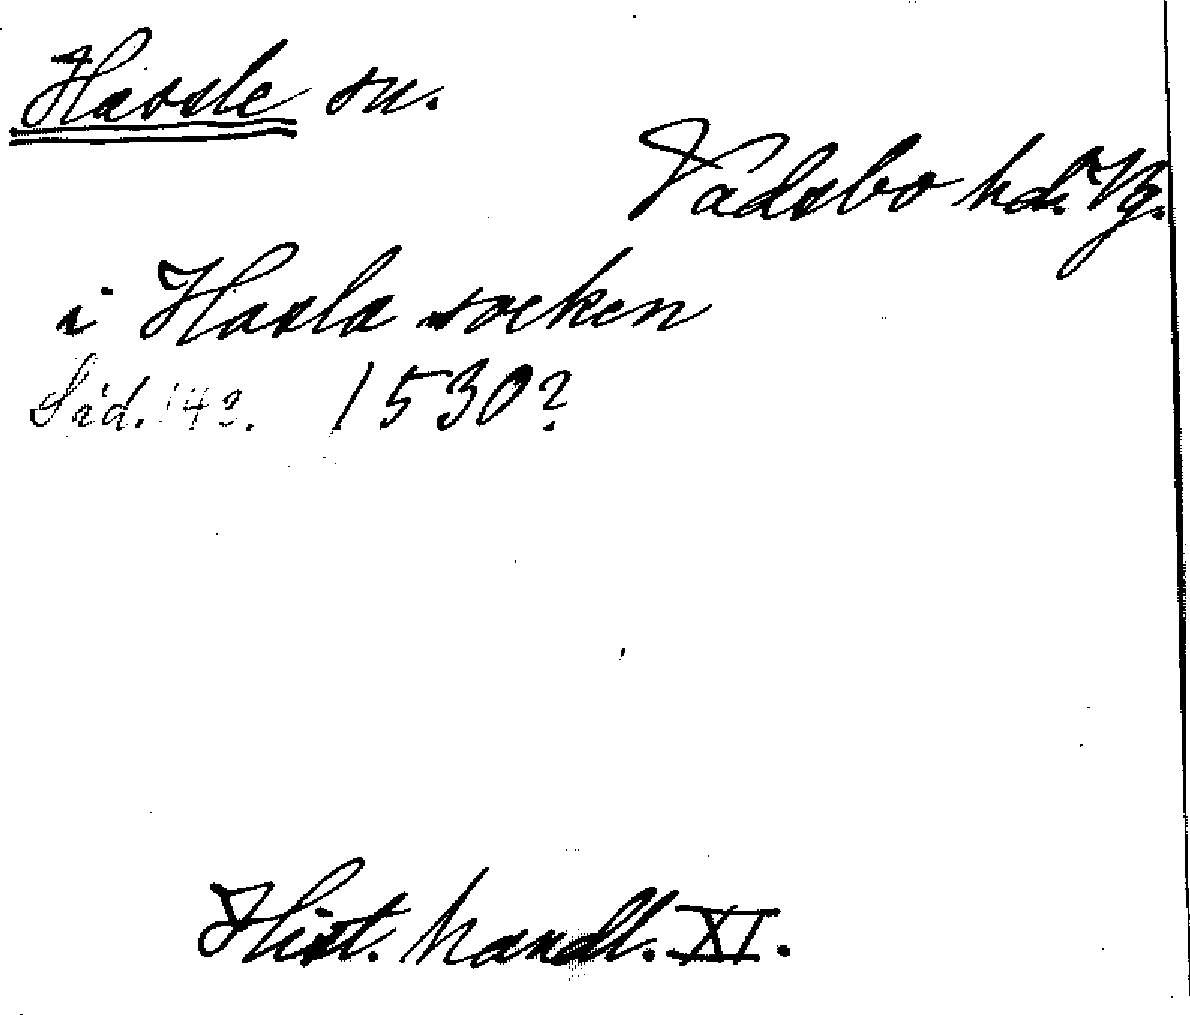 Hassle sn.
Vadsbo hd. Vg.
i Hasla socken
Sid. 142. 1530?
Hist. handl. XI.